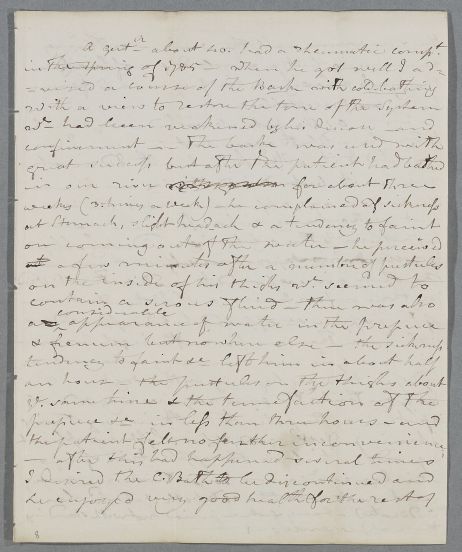 A gentn about 40. had a rheumatic compt.
in the spring of 1785 — when he got well I ad-
-vised a course of the Bark with cold bathing
with a view to restore the tone of the System
wh had been weakened by his disease and
confinement — The bark was used with
great success but after the patient had bathed
in our river for about three
weeks (3 times a week) — he complained of sickness
at Stomach, slight headach & a tendency to faint
on coming out of the water — he perceived
a few minutes after a number of pustules
on the inside of his thighs wh seemed to
contain a serous fluid — there was also
considerable
a appearance of water in the prepuce
& frenum but no where else — the sickness
tendency to faint &c left him in about half
an hour — the pustules on the thighs about
ye same time & the tumefaction of the
prepuce &c in less than three hours — and
the patient felt no further inconvenience
— after this had happened several times
I desired the C. Bath to be discontinued and
he enjoyed very good health for the rest of
8